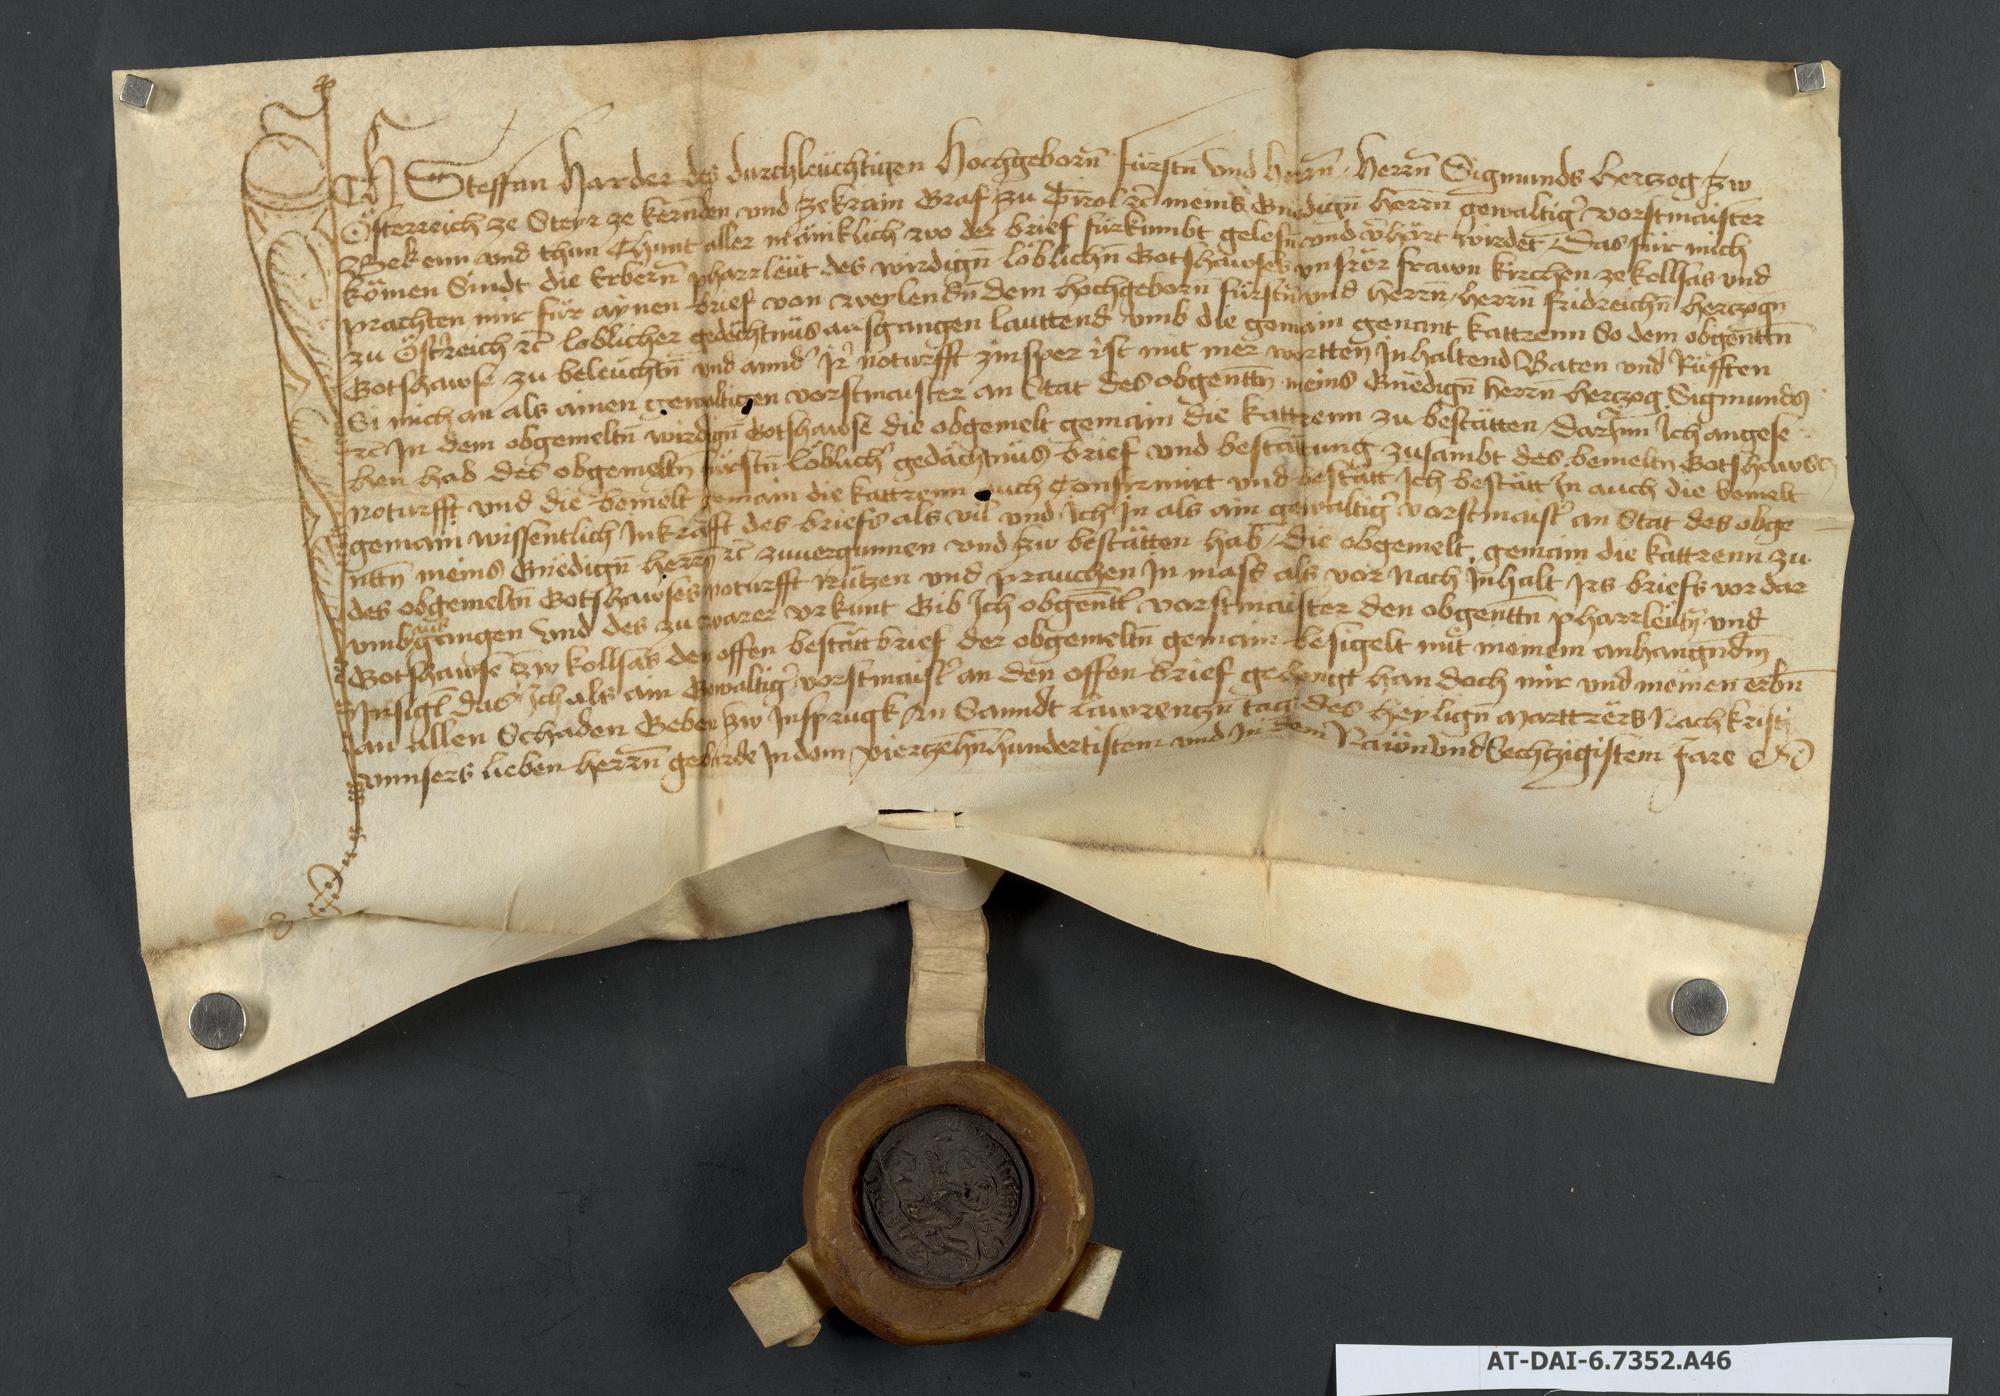 ICH Steffan Harder des durchleüchtigen Hochgeborñ fürstñ vnd herrñ / Herrñ Sigmunds hertzog zw
Österreich ze Steyr ze kernnden vnd ze krain Graf zu Tirol rc̄ meins Gnedigñ herrñ gewaltig' vorstmaister
Bekenn vnd thun Chunt aller mäniklich wo der brief fürkumbt gelesñ vnd v'hört wirdet Das für mich
kömen Sindt die Erberñ pharrleüt des wirdigñ löblichñ Gotshawses vnsrer frawn kirchen ze kollsas vnd
prachten mir für aynen brief von weylendñ dem hochgeborn fürstñ vnd herrñ / herrñ fridreichñ hertzogñ
zu Öst'reich rc̄ loblicher gedëchtnüs ausgangen lauttend vmb die gemain genant kattrenn So dem obgen̄ttñ
Gotshawse zu beleüchtñ vnd annd' Jr' noturfft zinsper ist mit mer wortten Jnhaltend Baten vnd Rüfften
Si mich an als ainen gewaltigen vorstmaister an Stat des obgen̄ttñ meins Gnëdigñ herrñ hertzog Sigmunds
rc̄ Jn dem obgemeltñ wirdigñ Gotshawse die obgemelt gemain die kattrenn zu bestätten / Darumb Jch angese
hen hab des obgemeltñ fürstñ löblich' gedächtnüs brief vnd bestätung zusambt des bemeltñ Gotshaws
noturfft vnd die bemelt gemain die kattrenn auch Confirmirt vnd bestätt Jch bestätt Jn auch die bemelt
gemain wissentlich Jnkrafft des briefs als vil vnd Jch Jn als ain gewaltig' vorstmaist' an Stat des obge
nttñ meins Gnëdigñ herrñ rc̄ zuuergunnen vnd zw bestätten hab / Die obgemelt gemain die kattrenn zu
des obgemeltñ Gotshawses noturfft Nützen vnd prauchen Jn mass als vor Nach Jnhalt Jrs briefs vor dar
vmb ausgangen Vnd des zu warer vrkunt Gib Jch obgen̄tt' vorstmaister den obgen̄ttñ pharrleütñ vnd
Gotshawse zw kollsas den offen bestättbrief der obgemeltñ gemain besigelt mit meinem anhangndm̄
Jnsigl das Jch als ain Gewaltig' vorstmaist' an den offen brief gehengt han doch mir vnd meinen erbñ
an allen Schaden Geben zw Jnsprugk An Sanndt Lawrenczñ tag des heyligñ marttrërs Nach kristi
vnnsers lieben herrñ geburde Jn dem vierzehñhundertistem vnd Jn dem Naün vnd Sechtzigistem Jare
AT-DAI-6.7352.A46